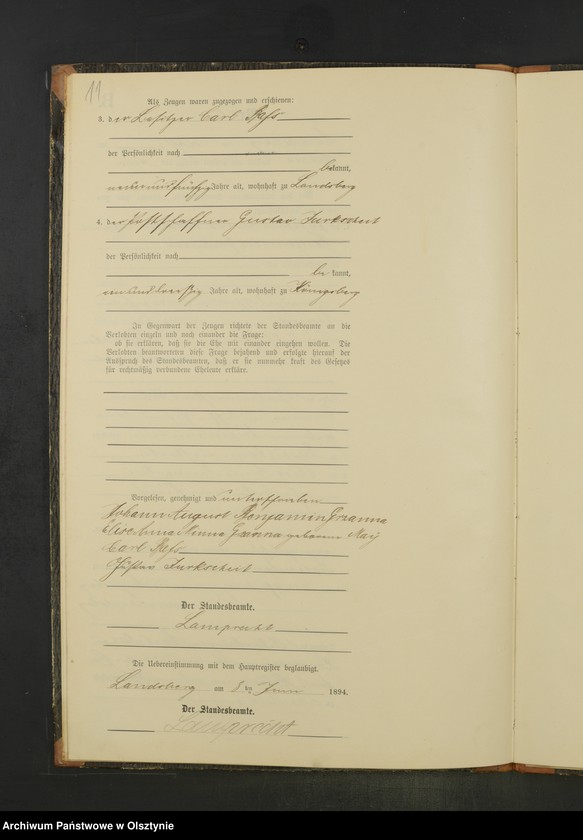 11
Als Zeugen waren zugezogen und erschienen:
3. der Besitzer Carl
der Persönlichkeit nach
bekannt,
neunundfünfzig Jahre alt, wohnhaft zu Landsberg
4. der Postschaffner Gustav Turkowski
der Persönlichkeit nach
be kannt,
einunddreißig Jahre alt, wohnhaft zu Königsberg
In Gegenwart der Zeugen richtete der Standesbeamte an die
Verlobten einzeln und nach einander die Frage:
ob sie erklären, daß sie die Ehe mit einander eingehen wollen. Die
Verlobten beantworteten diese Frage bejahend und erfolgte hierauf der
Ausspruch des Standesbeamten, daß er sie nunmehr kraft des Gesetzes
für rechtmäßig verbundene Eheleute erkläre.
Vorgelesen, genehmigt und unterschrieben
Johann August Benjamin
Elise Anna Minna geborene May
Carl
Gustav
Der Standesbeamte.
Lamprecht
Die Uebereinstimmung mit dem Hauptregister beglaubigt.
Landsberg am 8ten Juni 1894.
Der Standesbeamte.
Lamprecht
Archiwum Państwowe w Olsztynie